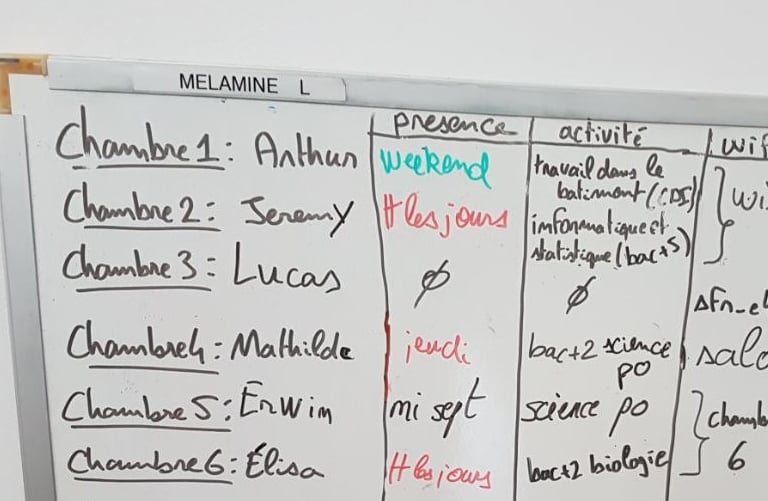 MELAMINE L
presence activité wif
Chambre 1 : Arthur weekend travail dans le
batiment (CDS)
Chambre 2 : Jeremy #les jours informatique et
statistique (bac+5)
Chambre 3 : Lucas ϕ ϕ ΔFn_el
Chambre 4 : Mathilde jeudi bac+2 science
po
Chambre 5 : Erwim mi sept science po chamb
6
Chambre 6 : Élisa #les jours bac+2 biologie